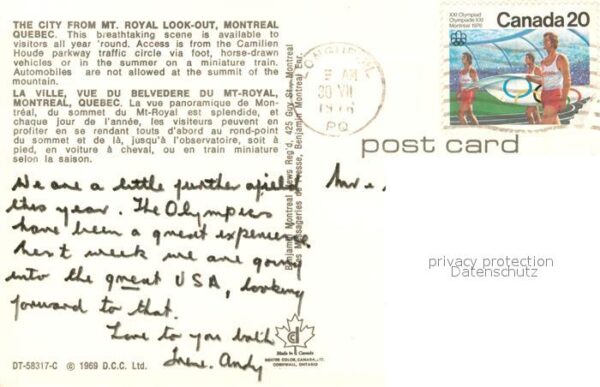 THE CITY FROM MT. ROYAL LOOK-OUT, MONTREAL
QUEBEC. This breathtaking scene is available to
visitors all year 'round. Access is from the Camilien
Houde parkway traffic circle via foot, horse-drawn
vehicles or in the summer on a miniature train.
Automobiles are not allowed at the summit of the
mountain.
LA VILLE, VUE DU BELVEDERE DU MT-ROYAL,
MONTREAL, QUEBEC. La vue panoramique de Mon-
tréal, du sommet du Mt-Royal est splendide, et
chaque jour de l'année, les visiteurs peuvent en
profiter en se rendant touts d'abord au rond-point
du sommet et de là, jusqu'à l'observatoire, soit à
pied, en voiture à cheval, ou en train miniature
selon la saison.
We are a little further afield
this year. The Olympics
have been a great experience
next week we are going
into the great USA, looking
forward to that.
Love to you both
Irene. Andy
DT-58317-C © 1969 D.C.C. Ltd.
Benjamin Montreal News Reg'd, 425 Guy St., Montreal
Les Messageries de Presse, Benjamin Montreal Enr.
Made in Canada
DEXTER COLOR, CANADA, LTD.
CORNWALL, ONTARIO
AM
30 VII
1976
PQ
XXI Olympiad
Olympiade XXI
Montréal 1976
Canada 20
post card
Mr
privacy protection
Datenschutz